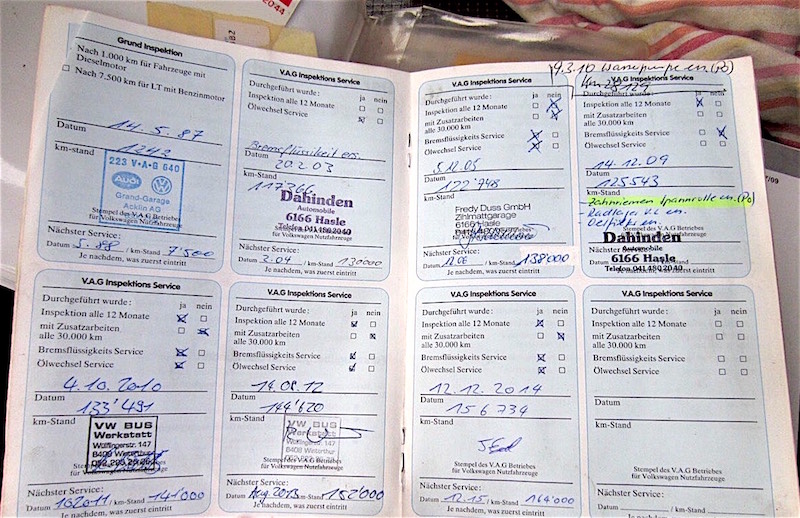 2044
Grund Inspektion
Nach 1.000 km für Fahrzeuge mit
Dieselmotor
☐ Nach 7.500 km für LT mit Benzinmotor
14.5.87
Datum
1242
km-Stand
223 V-A-G 640
Audi
Grand-Garage
Acklin AG
Stempel des V.A.G Betriebes
für Volkswagen Nutzfahrzeuge
Nächster Service:
Datum 5.88 / km-Stand 7'500
Je nachdem, was zuerst eintritt
V.A.G Inspektions Service
Durchgeführt wurde: ja nein
Inspektion alle 12 Monate
Ölwechsel Service
Bremsflüssikeit ers.
Datum 20.2.03
117'366
km-Stand
Dahinden
Automobile
6166 Hasle
Telefon 041 480 20 40
Stempel des V.A.G Betriebes
für Volkswagen Nutzfahrzeuge
Nächster Service:
Datum 2.04 / km-Stand 130000
Je nachdem, was zuerst eintritt
V.A.G Inspektions Service
Durchgeführt wurde: ja nein
Inspektion alle 12 Monate
mit Zusatzarbeiten
alle 30.000 km
Bremsflüssigkeits Service
Ölwechsel Service
5.12.05
Datum
122'748
km-Stand
Fredy Duss GmbH
Zihlmattgarage
6166 Hasle
Nächster Service:
Datum 12.06 / km-Stand 138'000
Je nachdem, was zuerst eintritt
9.3.10 Wasserpumpe en. (Po)
V.A.G Inspektions Service
Durchgeführt wurde: ja nein
Inspektion alle 12 Monate
mit Zusatzarbeiten
alle 30.000 km
Bremsflüssigkeits Service
Ölwechsel Service
14.12.09
Datum
125543
km-Stand
Zahnriemen Spannrolle en. (Po)
Dahinden
Automobile
6166 Hasle
Telefon 041 480 20 40
Nächster Service:
Je nachdem, was zuerst eintritt
V.A.G Inspektions Service
Durchgeführt wurde: ja nein
Inspektion alle 12 Monate
mit Zusatzarbeiten
alle 30.000 km
Bremsflüssigkeits Service
Ölwechsel Service
4.10.2010
Datum
133'491
km-Stand
VW BUS
Werkstatt
Wülflingerstr. 147
8408 Winterthur
Stempel des V.A.G Betriebes
für Volkswagen Nutzfahrzeuge
Nächster Service:
Datum 102011 / km-Stand 141'000
Je nachdem, was zuerst eintritt
V.A.G Inspektions Service
Durchgeführt wurde: ja nein
Inspektion alle 12 Monate
mit Zusatzarbeiten
alle 30.000 km
Bremsflüssigkeits Service
Ölwechsel Service
14.08.12
Datum
144'620
km-Stand
VW BUS
Werkstatt
Wülflingerstr. 147
8408 Winterthur
Stempel des V.A.G Betriebes
für Volkswagen Nutzfahrzeuge
Nächster Service:
Datum Aug. 2013 km-Stand 152'000
Je nachdem, was zuerst eintritt
V.A.G Inspektions Service
Durchgeführt wurde: ja nein
Inspektion alle 12 Monate
mit Zusatzarbeiten
alle 30.000 km
Bremsflüssigkeits Service
Ölwechsel Service
12.12.2014
Datum
156734
km-Stand
Stempel des V.A.G Betriebes
für Volkswagen Nutzfahrzeuge
Nächster Service:
Datum 12.15 / km-Stand 164'000
Je nachdem, was zuerst eintritt
V.A.G Inspektions Service
Durchgeführt wurde: ja nein
Inspektion alle 12 Monate
mit Zusatzarbeiten
alle 30.000 km
Bremsflüssigkeits Service
Ölwechsel Service
Datum
km-Stand
Stempel des V.A.G Betriebes
für Volkswagen Nutzfahrzeuge
Nächster Service:
Datum / km-Stand
Je nachdem, was zuerst eintritt